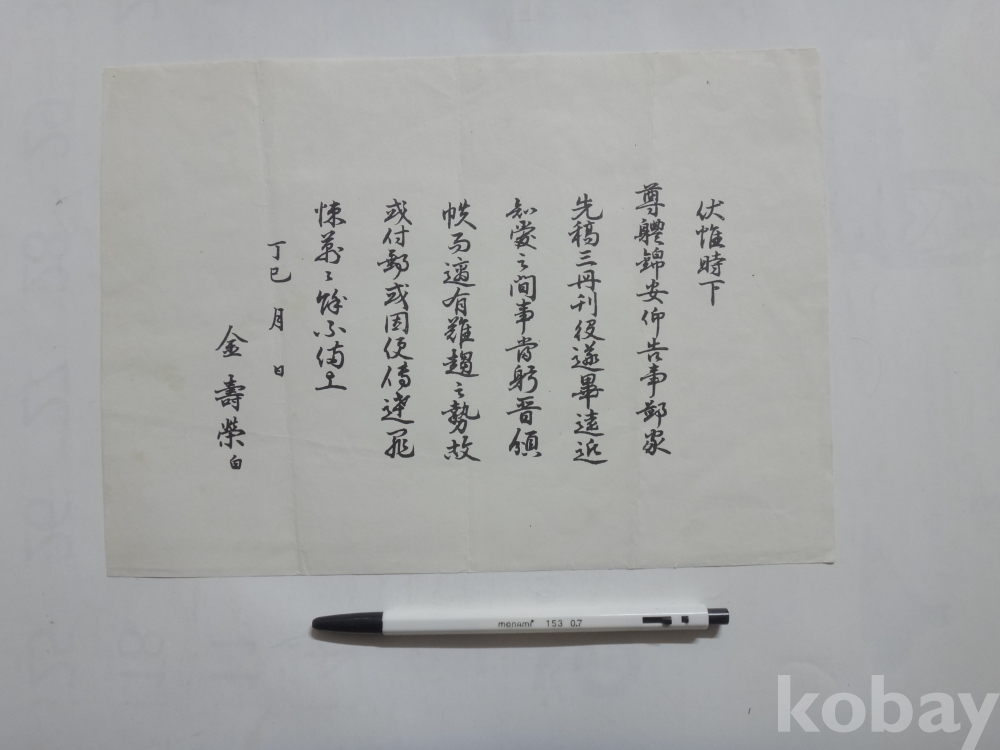 伏惟時下
尊體錦安仰告事鄙家
先稿三冊刊役遂畢遠近
知愛之間事當躬晋頒
帙而適有難趨之勢故
或付郵或因便傳達罪
悚萬〻餘不備上
丁巳 月 日
金壽榮白
monami 153 0.7
kobay